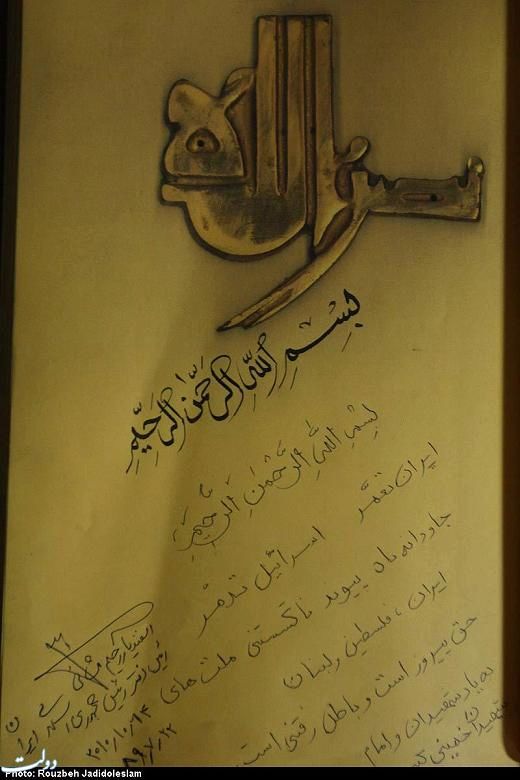 بِسْمِ اللهِ الرَّحْمنِ الرَّحِيمِ
بِسْمِ اللهِ الرَّحْمَنِ الرَّحِيمِ
ایران تعمّر اسرائیل تدمّر
جاودانه باد پیوند ناگسستنی ملت های
ایران، فلسطین و لبنان
حق پیروز است و باطل رفتنی است.
به یاد شهیدان و امام
شهیدان خمینی
اسفندیار رحیم مشائی
رئیس دفتر رئیس جمهوری اسلامی ایران
۲۰۱۰/۱۰/۱۴
۸۹/۷/۲۲
دولت
Photo: Rouzbeh Jadidoleslam